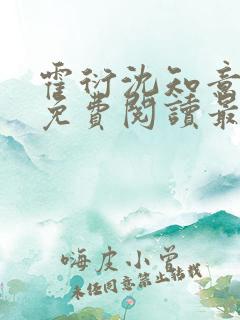 霍衍沈知意
免費閱讀最
嗨皮小曾
未任同意禁止转载